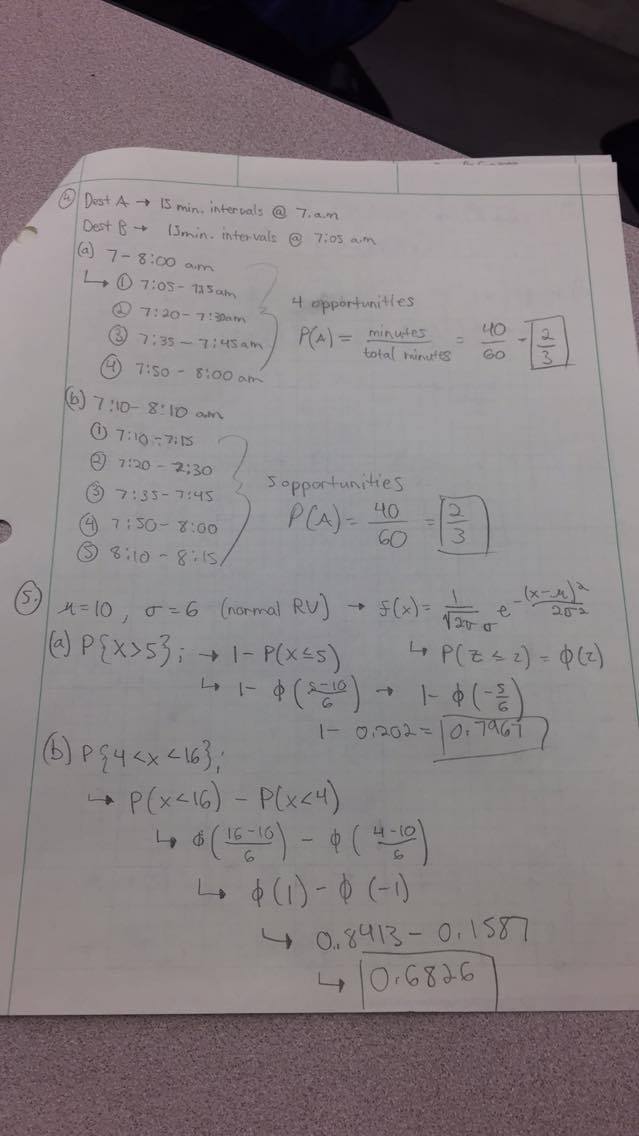 ④ Dest A → 15 min. intervals @ 7.a.m
Dest B → 15min. intervals @ 7:05 a.m
(a) 7 - 8:00 am
↳ ① 7:05 - 7:15am
② 7:20 - 7:30am
③ 7:35 - 7:45am
④ 7:50 - 8:00 am
4 opportunities
P(A) = minutes / total minutes = 40/60 = 2/3
(b) 7:10 - 8:10 am
① 7:10 - 7:15
② 7:20 - 7:30
③ 7:35 - 7:45
④ 7:50 - 8:00
⑤ 8:10 - 8:15
5 opportunities
P(A) = 40/60 = 2/3
⑤. μ=10, σ=6 (normal RV) → f(x) = 1/√2π σ e^-(x-μ)²/2σ²
(a) P{X>5}; → 1 - P(x≤5) ↳ P(z ≤ z) = Φ(z)
↳ 1 - Φ(5-10/6) → 1 - Φ(-5/6)
1 - 0.202 = 0.7967
(b) P{4<x<16};
↳ P(x<16) - P(x<4)
↳ Φ(16-10/6) - Φ(4-10/6)
↳ Φ(1) - Φ(-1)
↳ 0.8413 - 0.1587
↳ 0.6826